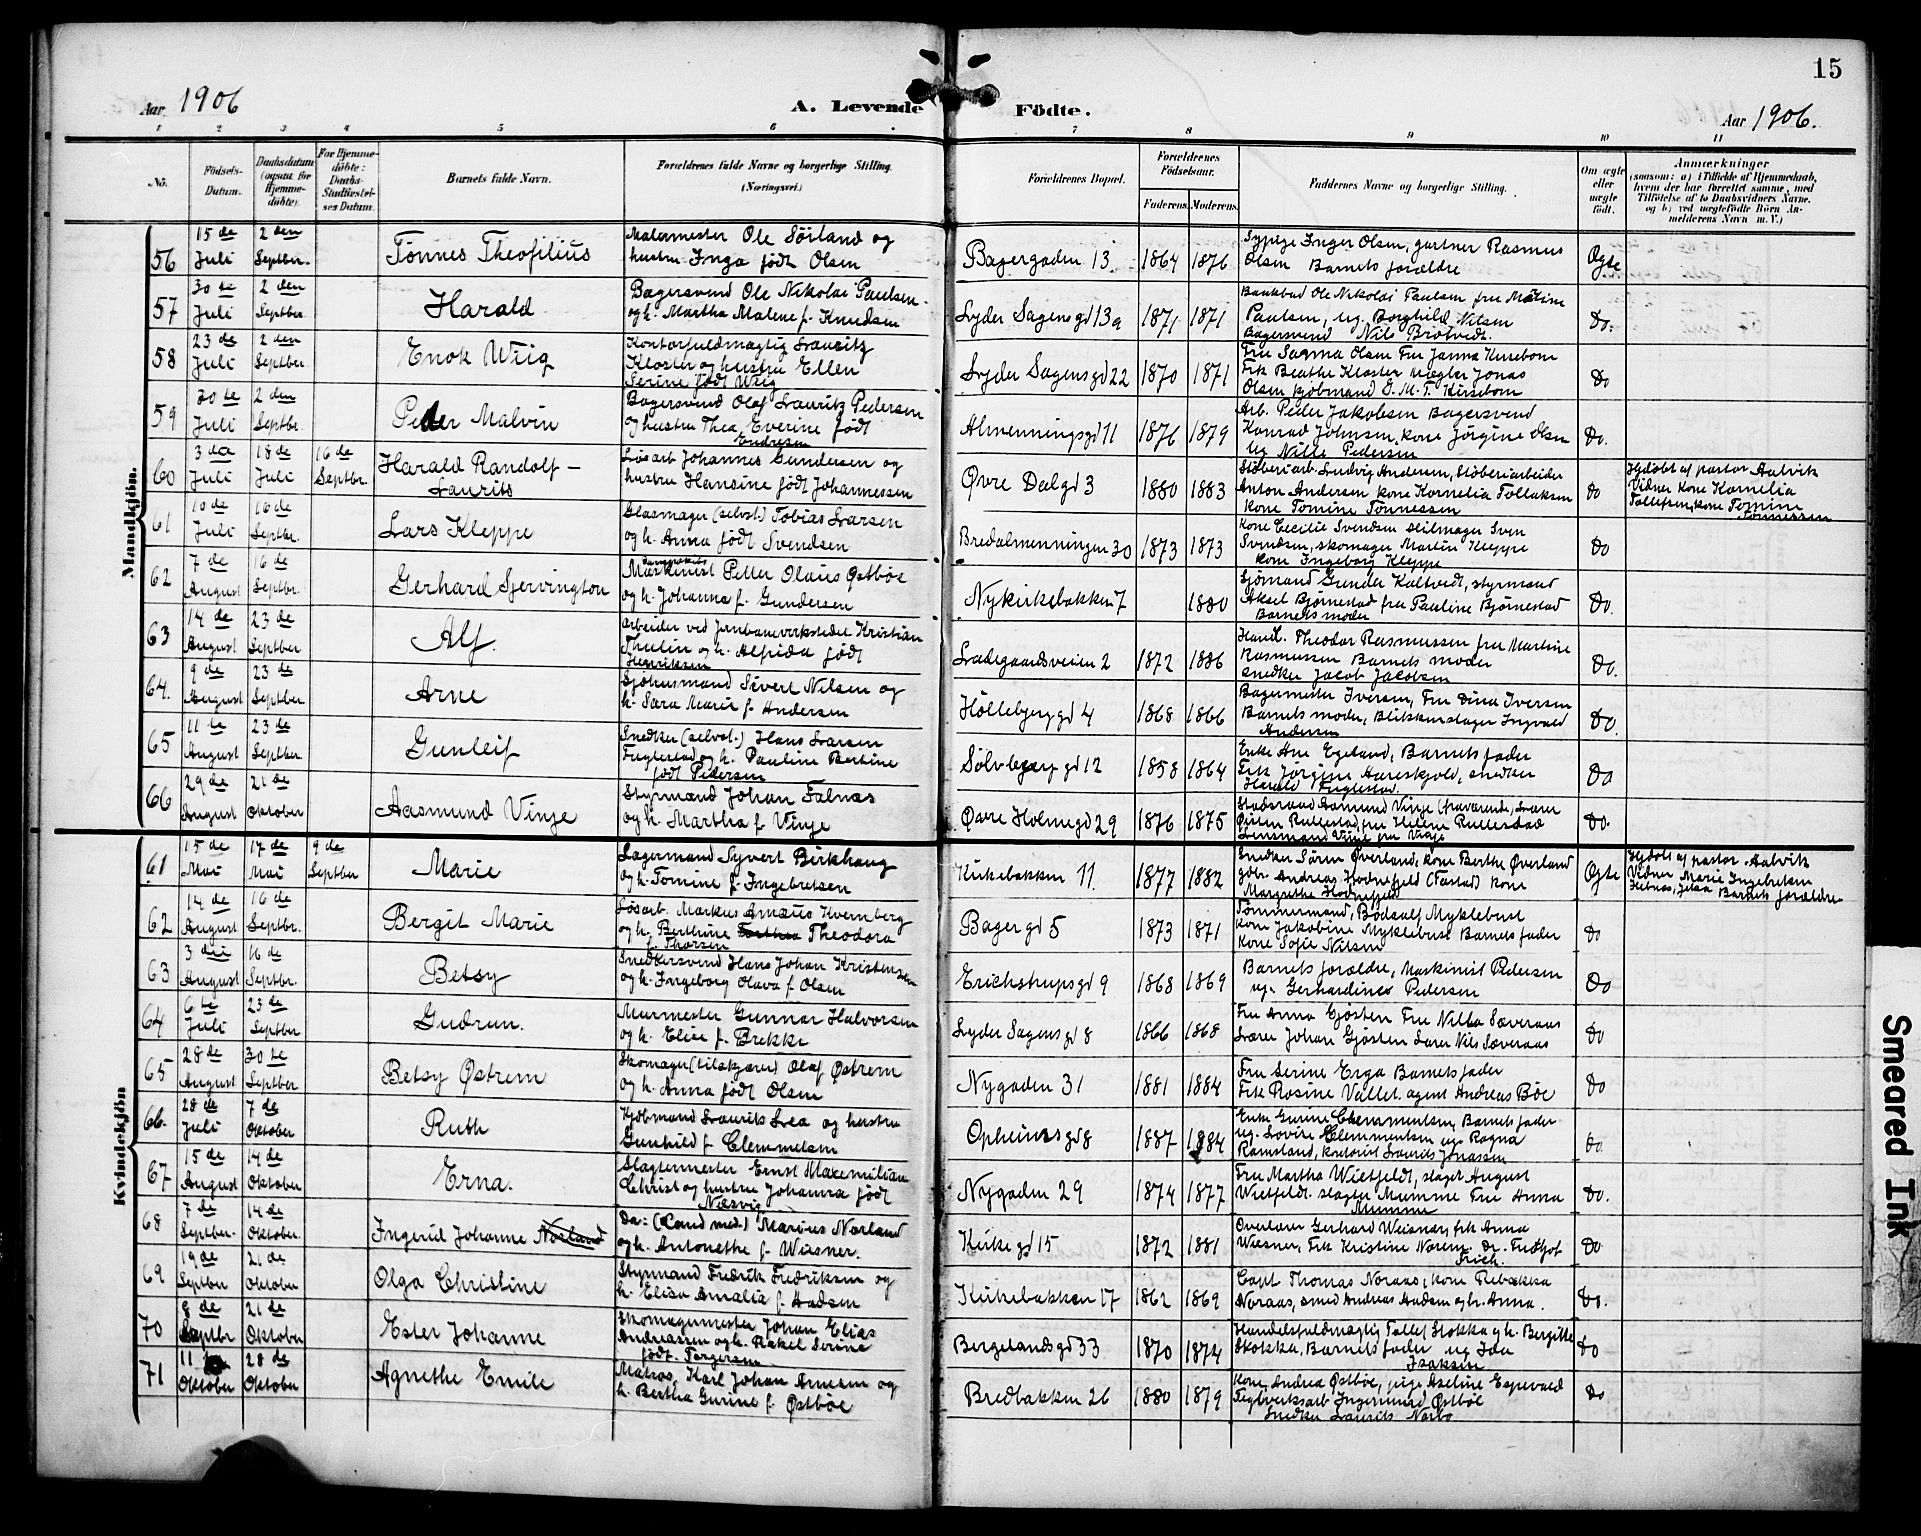 15
Aar 1906
A. Levende Födte.
Aar 1906.
1 2 3 4 5 6 7 8 9 10 11
No.
Födsels-Datum.
Daabsdatum (ogsaa for Hjemme-döbte).
For Hjemme-döbte: Daabs-Stadfæstel-ses Datum.
Barnets fulde Navn.
Forældrenes fulde Navne og borgerlige Stilling. (Næringsvei.)
Forældrenes Bopæl.
Forældrenes Födselsaar.
Faderens. Moderens.
Faddernes Navne og borgerlige Stilling.
Om ægte eller uægte födt.
Anmærkninger
(saasom: a) i Tilfælde af Hjemmedaab, hvem der har forrettet samme, med Tilföielse af to Daabsvidners Navne, og b) ved uægtefödte Börn An-melderens Navn m. V.)
Mandkjön.
56 15de Juli 2den Septber. Tönnes Theofilius
Malermester Ole Sörland og
hustru Inga födt Olsen
Bagergaden 13 1864 1876
Sypige Inger Olsen, gartner Rasmus
Olsen Barnets forældre
Ægte
57 30te Juli 2den Septber Harald
Bagersvend Ole Nikolai Paulsen
og h. Martha Malene f. Knudsen
Lyder Sagens gd 13a 1871 1871
Baakbud Ole Nikolai Paulsen fru Matine
Paulsen, ug. Borghild Nilsen
Bagersvend Nils Brotvedt.
Do.
58 23de Juli 2den Septber Enok Wiig
Kontorfuldmægtig Lauritz
Kloster og hustru Ellen
Serine födt Wiig
Lyder Sagens gd 22 1870 1871
Fru Sagma Olsen Fru Janna Kirsebom
Frk Beathe Kloster Mægler Jonas
Olsen kjöbmand G. M. T. Kirsebom
Do
59 30te Juli 2den Septbr. Peder Malvin
Bagersvend Olaf Lauritz Pedersen
og hustru Thea Everine födt
Endresen
Almenningsgd 11 1876 1879
Arb. Peder Jakobsen Bagersvend
Konrad Johnsen, kone Jörgine Olsen
ug Nille Pedersen
Do.
60 3die Juli 18de Juli 16de Septbr. Harald Randolf-
Laurits
Lösarb Johannes Gundersen og
hustru Hansine födt Johannessen
Øvre Dalgd 3 1880 1883
Stöberiarb. Ludvig Andersen, Stöberiarbeider
Anton Andersen kone Kornelia Tollaksen
Kone Tomine Tönnessen
Do
Hjdöbt af pastor Aalvik
Vidner Kone Kornelia
Tollefsen, kone Tomine
Tönnessen
61 10de Juli 16de Septbr. Lars Kleppe
Glasmager (selvst.) Tobias Larsen
og h. Anna födt Svendsen
Bredalmenningen 30 1873 1873
Kone Cecilie Svendsen Seilmager Sven
Svendsen, skomager Martin Kleppe
Kone Ingeborg Kleppe
Do
62 7de August 16de Septbr. Gerhard Sjervington
Maskinist Petter Olaus Østböe
og h. Johanna f. Gundersen
Nykirkebakken 7 1880
Sjömand Gunder Kaltvedt, styrmand
Aksel Björnestad fru Pauline Björnestad
Barnets moder
Do.
63 14de August 23de Septber Alf.
arbeider ved Jernbaneverkstedet Kristian
Thulin og h. Alfrida födt
Henriksen
Ladegaardsveien 2 1872 1886
Handl. Theodor Rasmussen fru Martine
Rasmussen Barnets moder
snedker Jacob Jacobsen
Do.
64. 9de August 23de Septber. Arne
Sjöhusmand Sivert Nilsen og
h. Sara Marie f. Andersen
Höllebjerggd 4 1868 1866
Bagermester Iversen, Fru Dina Iversen
Barnets moder, Blikkenslager Ingvald
Andersen
Do.
65 11te August 23de Septber Gunleif
Snedker (selvst.) Hans Larsen
Fuglestad og h. Pauline Bertine
födt Pedersen
Sölvbergg gd 12 1858 1864
Enke Ane Egeland, Barnets fader
Frk Jörgine Aareskjold, snedker
Harald Fuglestad.
Do
66 29de August 21de Oktober Aasmund Vinje
Styrmand Johan Falnæs
og h. Martha f. Vinje
Øvre Holmegd 29 1876 1875
Stadsraad Aamund Vinje (fraværende) Lærer
Østen Rullestad, fru Helene Rullestad
Lensmand Vinje fru Vinje
Do.
Kvindekjön
61 15de Mai 17de Mai 9de Septber Marie
Lagermand Syvert Birkhaug
og h. Tomine f. Ingebretsen
Kirkebakken 11. 1877 1882
Snedker Sören Øverland, kone Berthe Øverland
gdbr. Andreas Hodnefjeld (Fastad) kone
Margrethe Hodnefjeld
Ægte
Hjdöbt af pastor Aalvik
Vidner Marie Ingebretsen
Hetnæs, Jelsa Barnets forældre
62 14de August 16de Septbr. Bergit Marie
Lösarb. Markus Amæus Kvernberg
og h. Berthine Theodora
f. Thorsen
Bagergd 5 1873 1871
Tömmermand, Bödsalf Myklebust
Kone Jakobine Myklebust Barnets fader
Kone Sofie Nilsen
Do
63 3die August 16de Septbr. Betsy
Snedkersvend Hans Johan Kristensen
og h. Ingeborg Olava f. Olsen
Erichstrupsgd 9 1868 1869
Barnets forældre, Maskinist Pedersen
ug. Gerhardines Pedersen
Do
64 6te Juli 23de Septber Gudrun.
Murmester Gunnar Halvorsen
og h. Elise f. Brekke
Lyder Sagens gd 8 1866 1868
Fru Anna Gjösten Fru Nilla Sæveraas
Lærer Johan Gjösten Lærer Nils Sæveraas
Do
65 28de August 30te Septber Betsy Østrem
Skomager (tilskjærer) Olaf Østrem
og h. Anna födt Olsen
Nygaden 31 1881 1884
Fru Serine Erga Barnets fader
Frk Rosine Vallet. agent Andreas Böe
Do
66. 28de Juli 7de Oktober Ruth
Kjöbmand Laurits Lea og hustru
Gunhild f. Clemmetsen
Opheimsgd 8 1887 1884
Enke Gurine Clemmentsen Barnets fader
ug. Lovise Clemmentsen ug. Ragna
Ramsland, kontorist Laurits Jonassen
Do.
67 15de August 14de Oktober Erna.
Slagtermester Ernst Maxemilian
Christ og hustru Johanna födt
Næsvig
Nygaden 29 1874 1877
Fru Martha Wietfeldt, slagt August
Wietfeldt. slagter Mumme Fru Anna
Mumme
Do.
68 7de Septber. 14de Oktober. Ingerid Johanne Norland
Dr. (Cand med.) Marius Norland
og h. Antonethe f. Wiesner.
Kirkegd 15 1872 1881
Overlærer Gerhard Weisner, frk Anna
Wiesner, Frk Kristine Norem dr. Fridtjof
Frich.
Do
69 19de Septber 21de Oktober Olga Christine
Styrmand Fredrik Fredriksen og
h. Elisa Amalia f. Aadsen
Kirkebakken 17 1862 1869
Capt Thomas Noraas, kone Rebekka
Noraas, smed Andreas Aadsen og h. Anna.
Do.
70 8de Septbr 21de Oktober Ester Johanne
Skomagermester Johan Elias
Andreassen og h. Rakel Serine
födt. Torgersen
Bergelandsgd 33 1870 1874
Handelsfuldmægtig Tollef Stokka og h. Bergitte
Stokka, Barnets fader ug Ida
Isaksen
Do
71 11te Oktober 28de Oktober Agnethe Emilie
Matros, Karl Johan Arnesen og
h. Bertha Gurine f. Østböe
Bredbakken 26 1880 1879
Kone Andrea Østböe, pige Aseline Espevold
Teglverksarb Ingemund Østböe
Snedker Laurits Narbo
Do
Smeared Ink